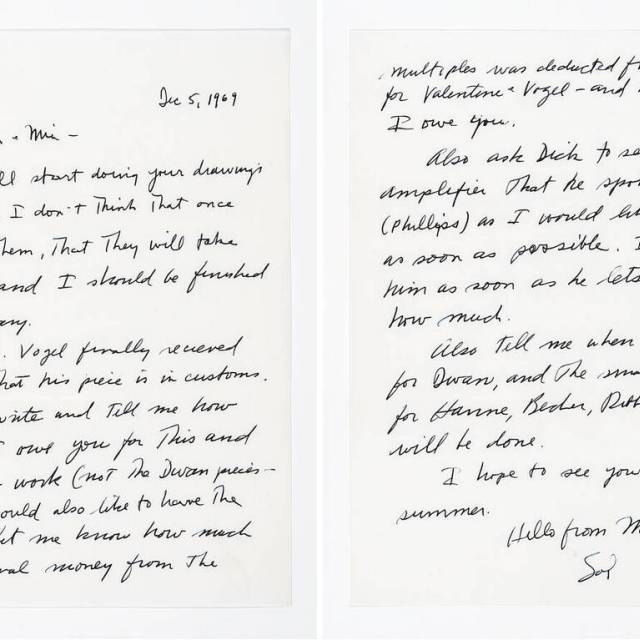 Dec 5, 1969
+ Mia -
ll start doing your drawings
I don't Think That once
Them, That They will take
and I should be finished
Vogel finally recieved
hat his piece is in customs.
write and Tell me how
owe you for This and
work (not The Dwan pieces-
ould also like to have The
et me know how much
money from The
multiples was deducted f
for Valentine + Vogel - and
I owe you.
Also ask Dick to se
amplifier That he spo
(Phillips) as I would li
as soon as possible. I
him as soon as he lets
how much.
Also Tell me when
for Dwan, and The sma
for Hanne, Becher,
will be done.
I hope to see you
summer.
Hello from M
Sol